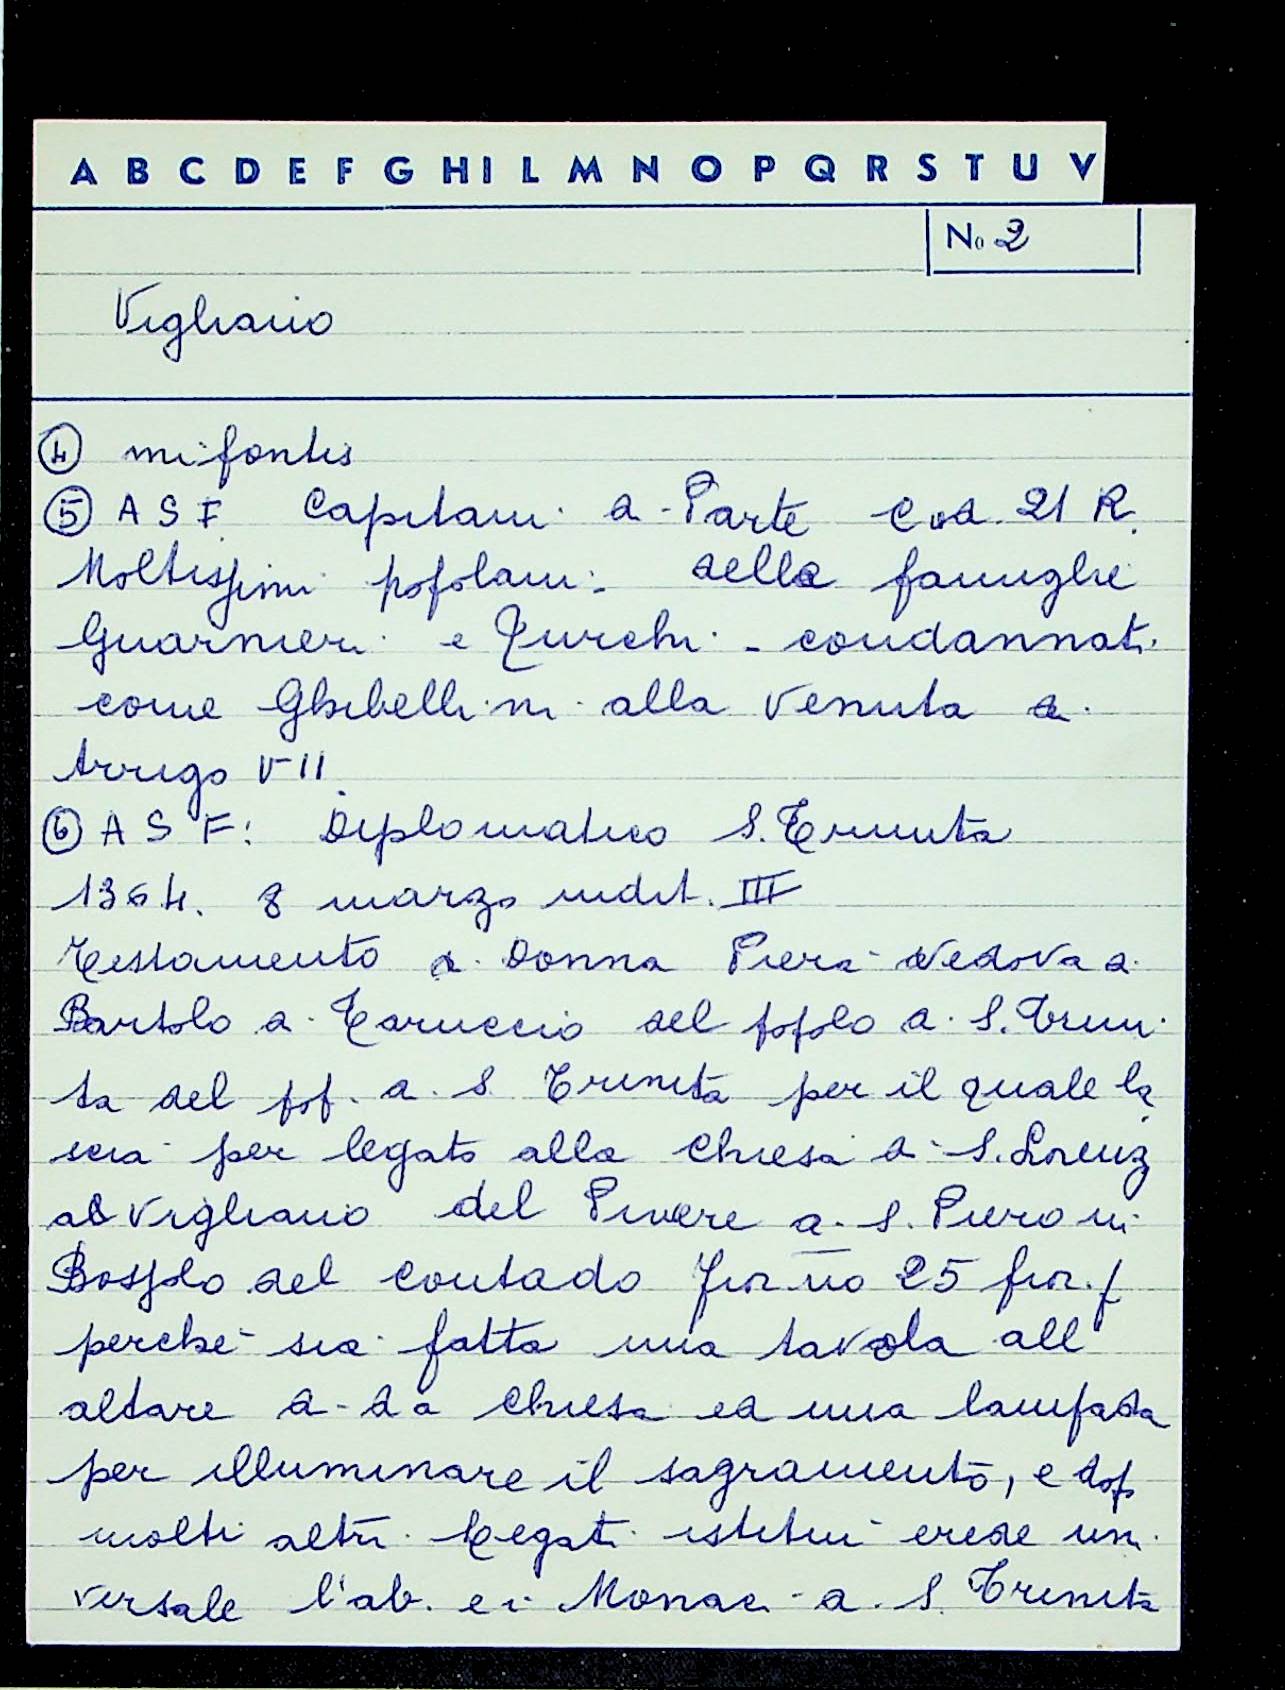 A B C D E F G H I L M N O P Q R S T U V
No 2
Vigliano
④ mifontis
⑤ A S F Capitani di Parte Cod. 21 R.
Moltissimi popolani delle famiglie
Guarnieri e Turchi - condannati
come Ghibellini alla venuta di
Arrigo VII.
⑥ A S F: Diplomatico S. Trinita
1364. 8 marzo indit. III
Testamento di Donna Piera vedova di
Bartolo di Taruccio del popolo di S. Trini
ta del pop. di S. Trinita per il quale la
scia per legato alla Chiesa di S. Lorenz
a Vigliano del Piviere di S. Piero in
Bossolo del contado Fior no 25 fior. f
perche sia fatta una tavola all
altare di da Chiesa ed una lampada
per illuminare il sagramento, e dop
molti altri legati istitui erede uni
versale l'ab. e i Monaci di S. Trinita